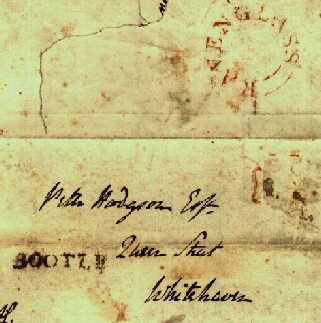 RAVENGLASS
Peter Hodgson Esqr
Queen Street
BOOTLE
Whitehaven